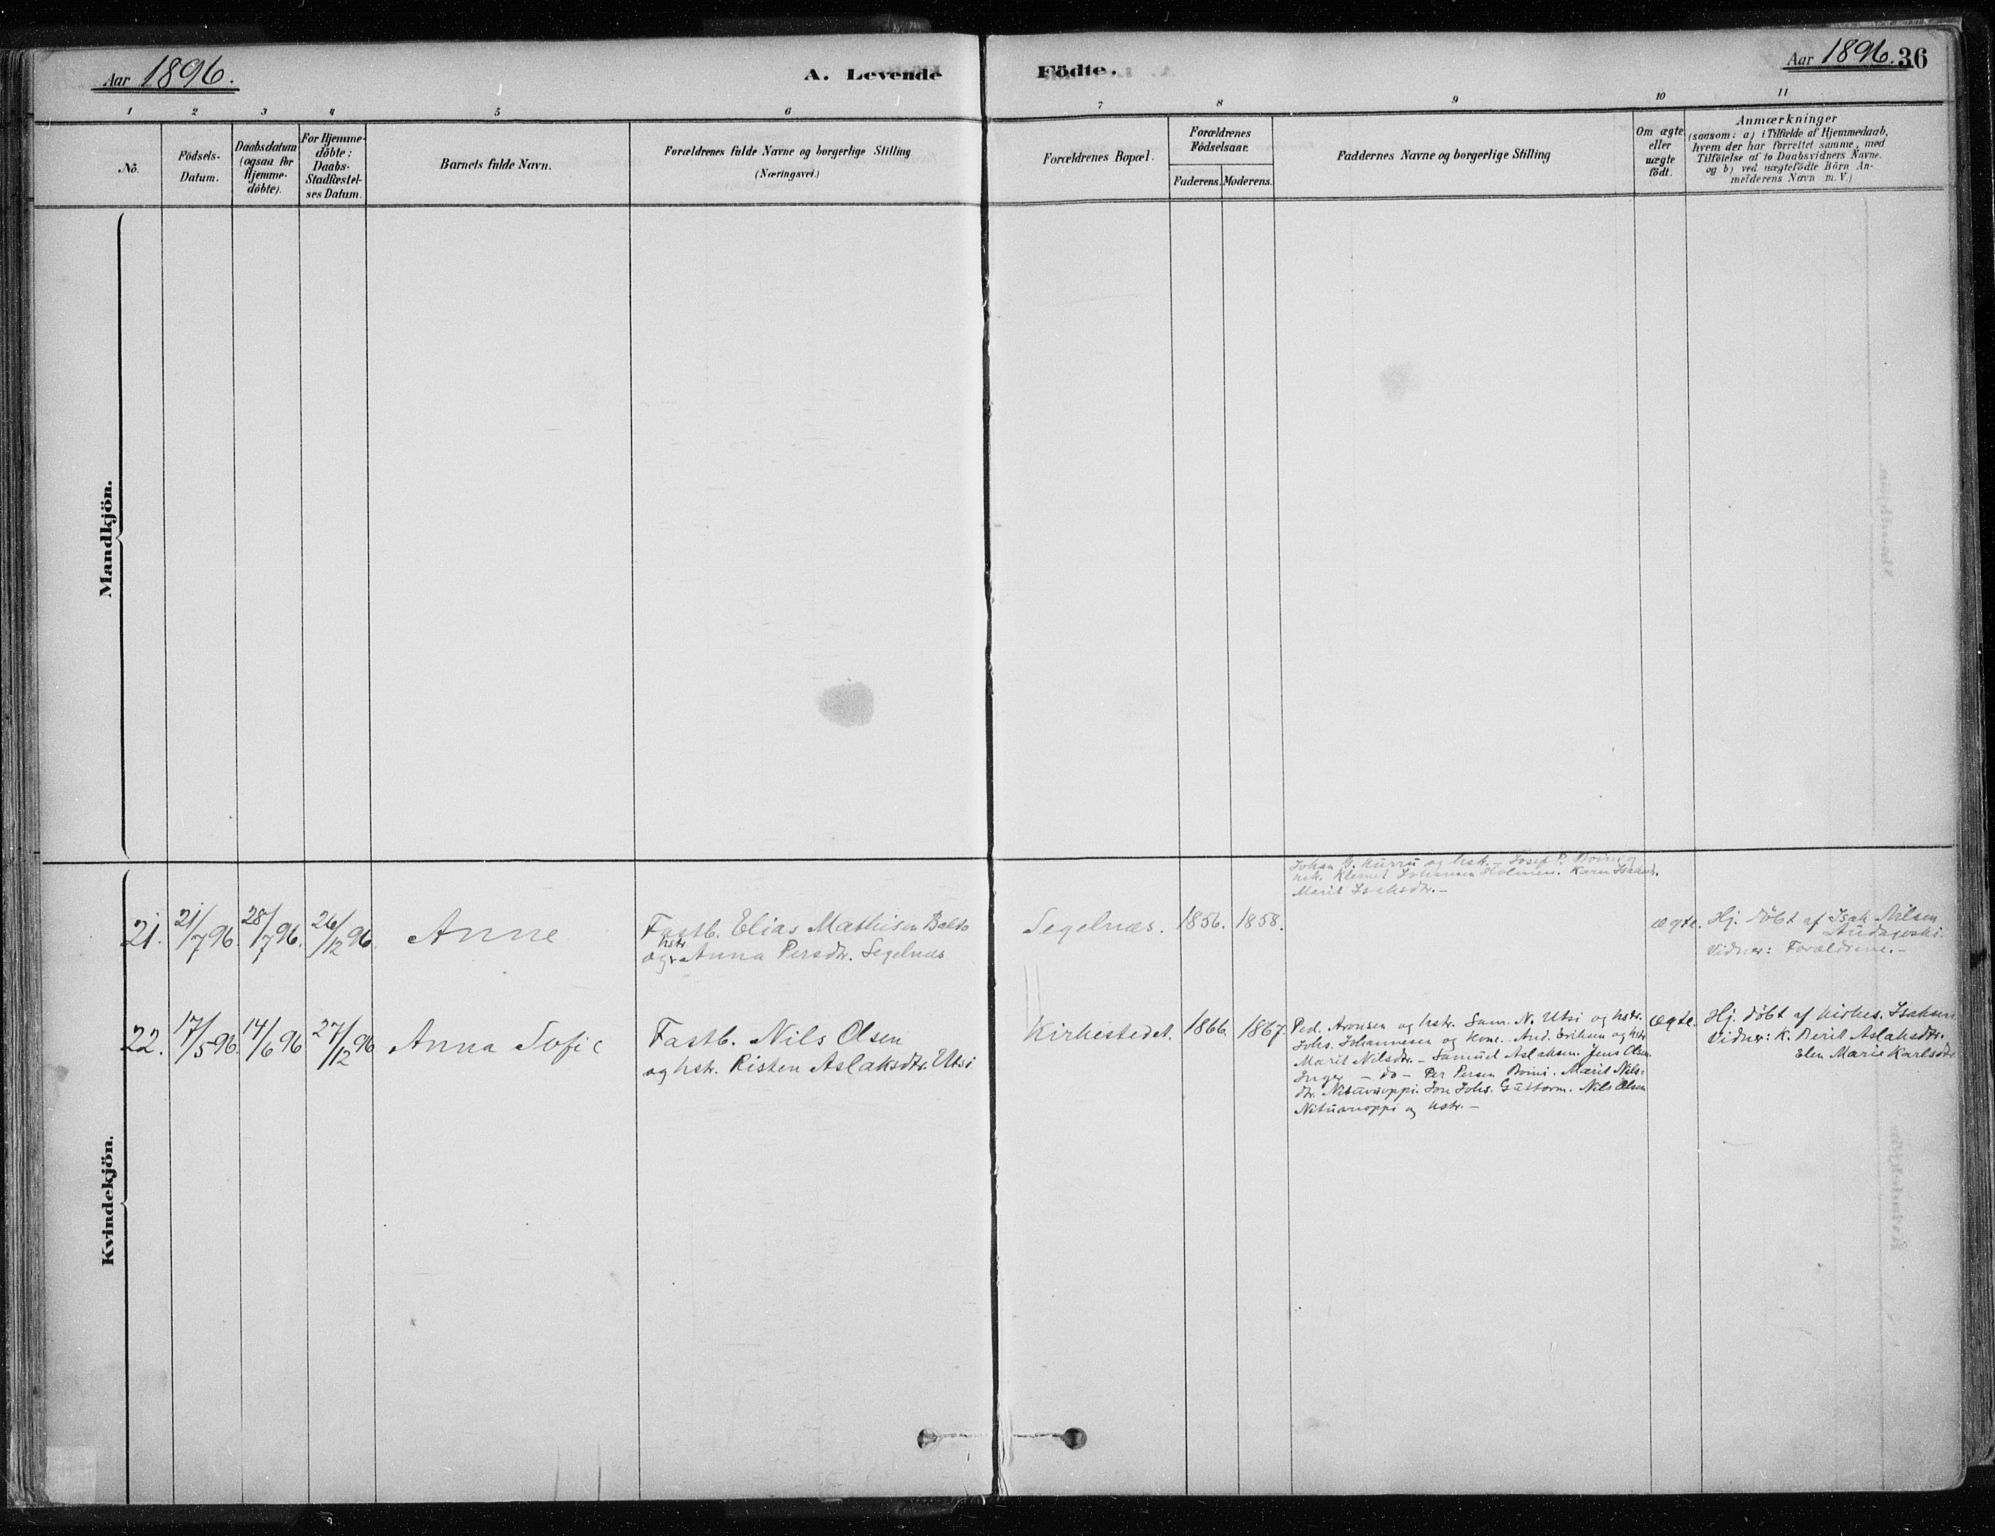 Aar 1896.
A. Levende Födte.
Aar 1896. 36
1 2 3 4 5 6 7 8 9 10 11
No.
Födsels-
Datum.
Daabsdatum
(ogsaa for
Hjemme-
döbte).
For Hjemme-
döbte:
Daabs-
Stadfæstel-
ses Datum.
Barnets fulde Navn.
Forældrenes fulde Navne og borgerlige Stilling
(Næringsvei.)
Forældrenes Bopæl.
Forældrenes
Födselsaar.
Faderens. Moderens.
Faddernes Navne og borgerlige Stilling
Om ægte
eller
uægte
födt.
Anmærkninger
(saasom: a) i Tilfælde af Hjemmedaab,
hvem der har forrettet samme, med
Tilföielse af to Daabsvidners Navne.
og b) ved uægtefödte Börn An-
melderens Navn m. V.)
Mandkjön.
Kvindekjön.
21. 21/7 96. 28/7 96. 26/12 96. Anne
Fastb. Elias Mathisen Balto
og hstr Anna Persdtr. Segelnæs
Segelnæs. 1856. 1858.
Johan og hstr. Josef P.
Klemet Johansen Holmen. Karen
Marit Isaksdtr. –
ægte. Hj. döbt af Isak Nilsen
Vidner: Forældrene. –
22. 17/5 96. 14/6 96 27/12 96 Anna Sofie
Fastb. Nils Olsen
og hstr. Risten Aslaksdtr. Utsi
Kirkestedet. 1866. 1867.
Ped. Aronsen og hstr. Sam. N. Utsi og hstr.
Johs. Johannesen og Kone. And. Eriksen og hstr
Marit Nilsdtr. – Samuel Aslaksen. Jens Olsen
Inger – do – Per Persen Boini. Marit Nils-
dtr. Nituanoppi. Jon Johs. Guttorm. Nils Olsen
Nituanoppi og hstr. –
ægte. Hj. döbt af Kirkes. Isaksen
Vidner: K. Berit Aslaksdtr.
Elen Marie Karlsdtr